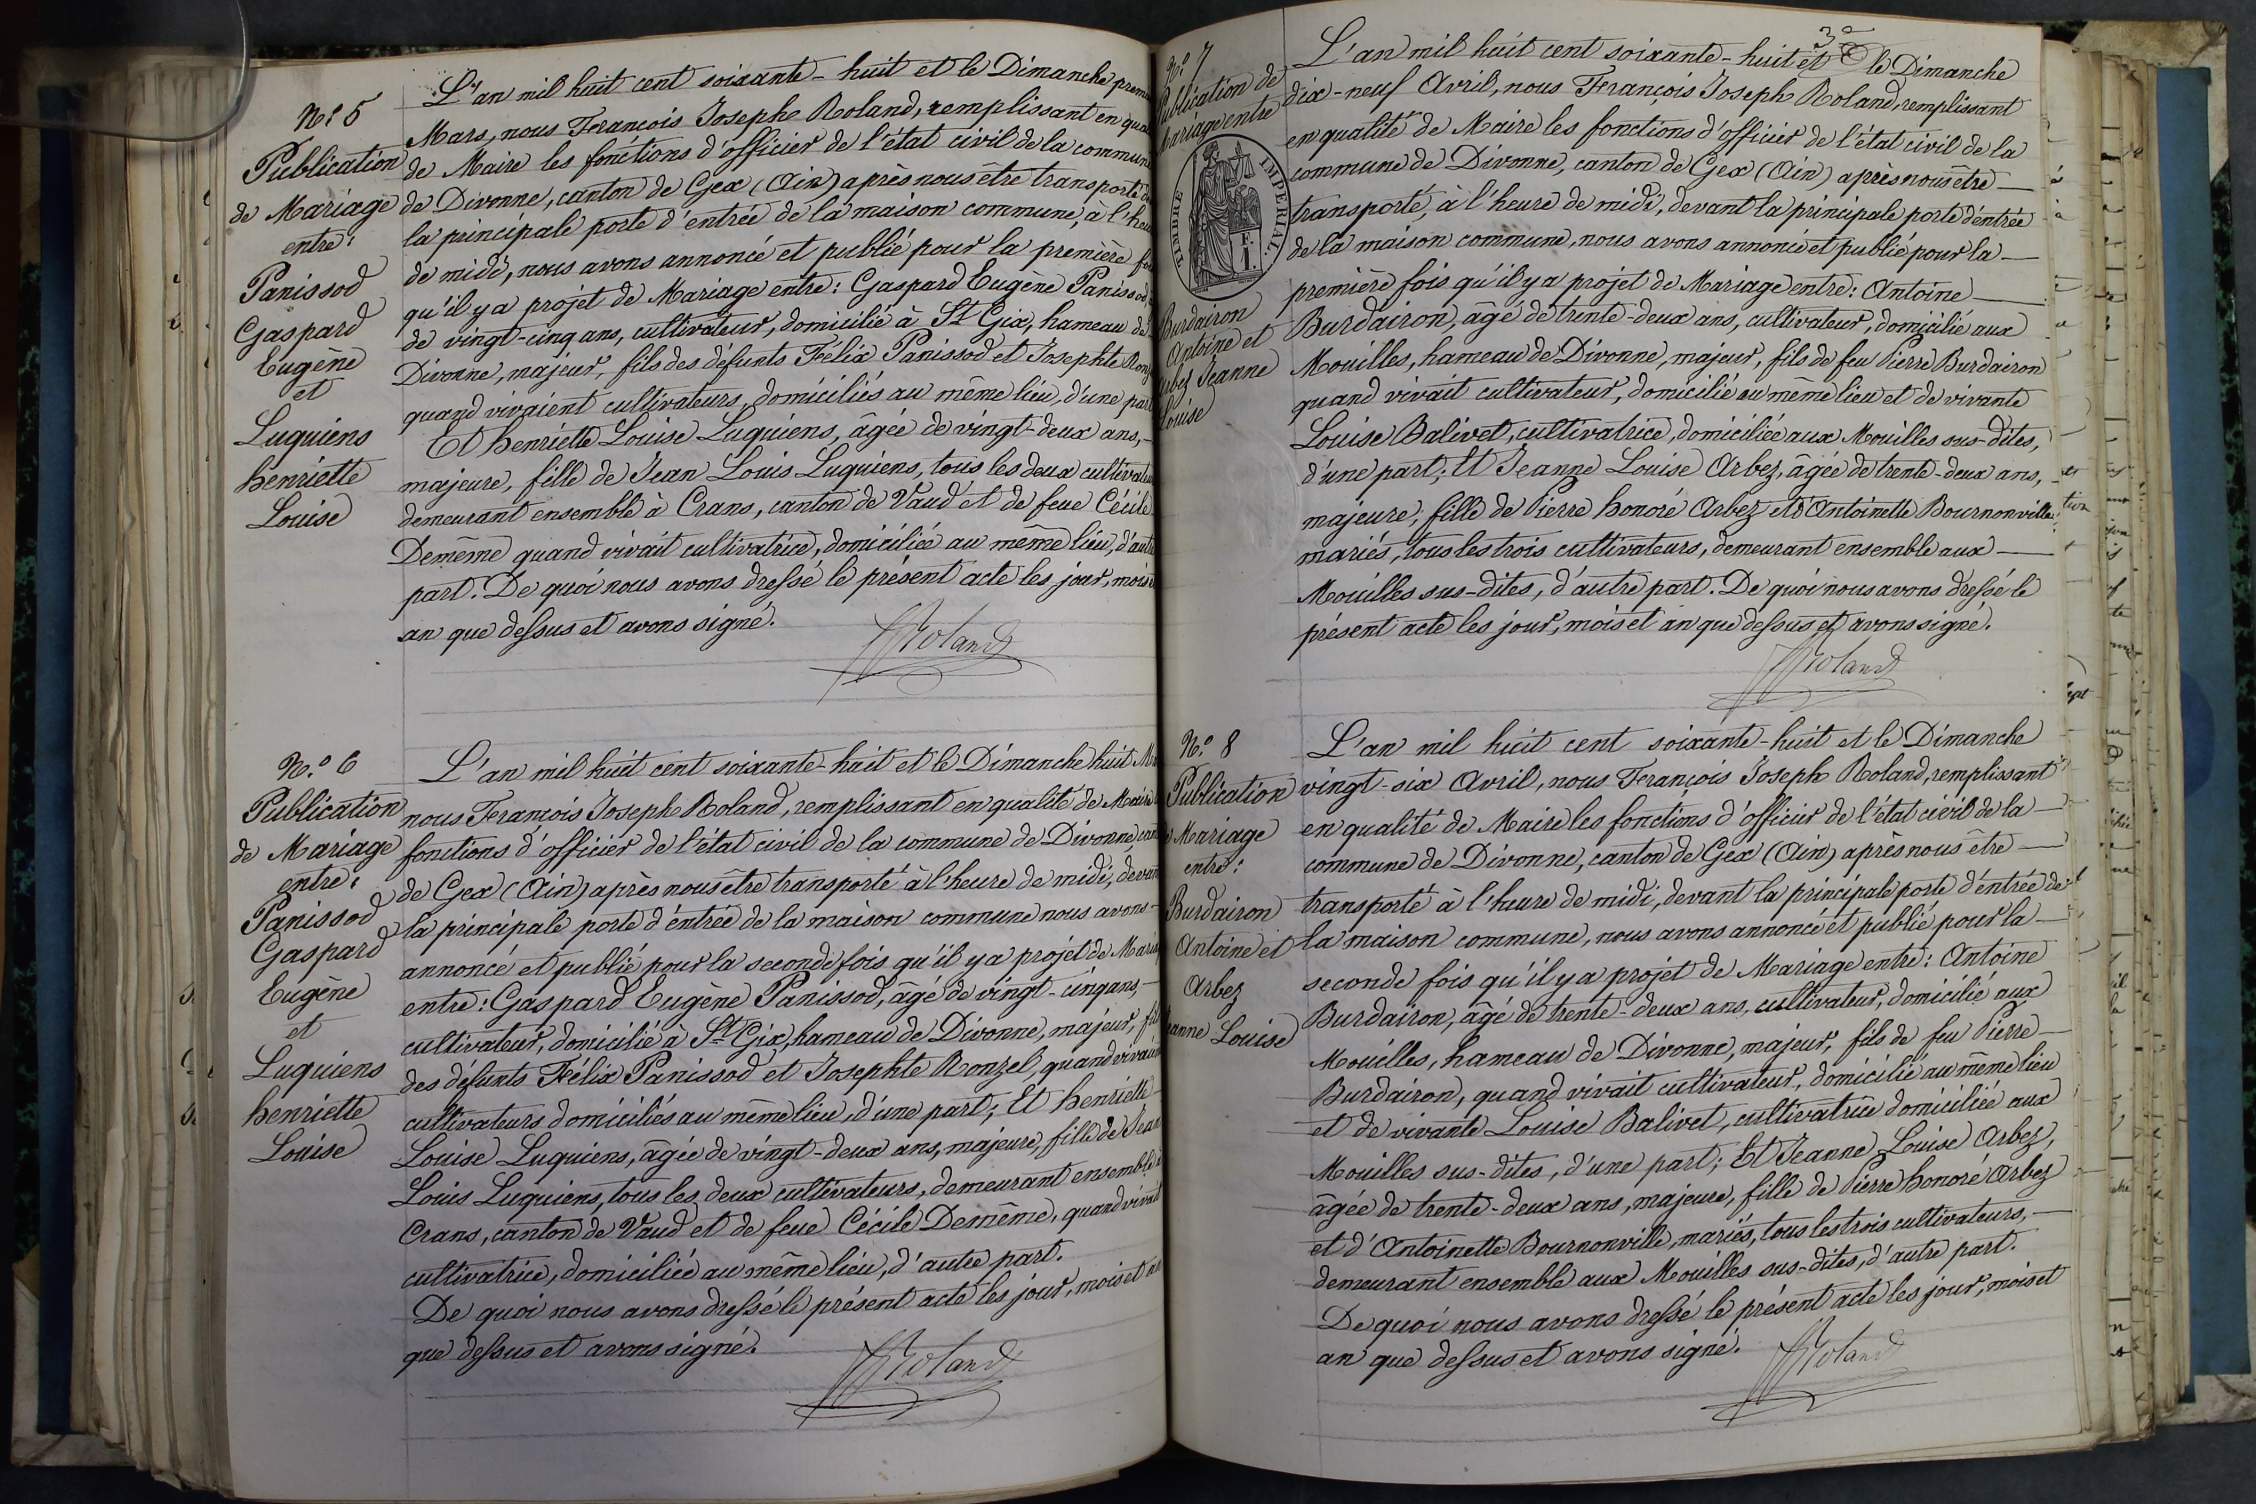 N.° 5
Publication
de Mariage
entre:
Panissod
Gaspard
Eugène
et
Luquiens
henriette
Louise
L'an mil huit cent soixante-huit et le Dimanche prem
Mars, nous François Joseph Roland, remplissant en qua
de Maire les fonctions d'officier de l'état civil de la commun
de Divonne, canton de Gex (Ain) après nous être transporté d
la principale porte d'entrée de la maison commune, à l'heu
de midi, nous avons annoncé et publié pour la première fo
qu'il y a projet de Mariage entre: Gaspard Eugène Panissod,
de vingt-cinq ans, cultivateur, domicilié à St Gix, hameau de
Divonne, majeur, fils des défunts Félix Panissod et Josephte Ronz
quand vivaient cultivateurs, domiciliés au même lieu, d'une part
Et henriette Louise Luquiens, âgée de vingt-deux ans,-
majeure, fille de Jean Louis Luquiens, tous les deux cultivate
demeurant ensemble à Crans, canton de Vaud et de feue Cécile
Demême quand vivait cultivatrice, domiciliée au même lieu, d'autr
part. De quoi nous avons dressé le présent acte les jour, mois
an que dessus et avons signé.
Roland
N.° 6
Publication
de Mariage
entre:
Panissod
Gaspard
Eugène
et
Luquiens
henriette
Louise
L'an mil huit cent soixante-huit et le Dimanche huit M
nous François Joseph Roland, remplissant en qualité de Maire
fonctions d'officier de l'état civil de la commune de Divonne, can
de Gex (Ain) après nous être transporté à l'heure de midi, devan
la principale porte d'entrée de la maison commune nous avons-
annoncé et publié pour la seconde fois qu'il y a projet de Maria
entre: Gaspard Eugène Panissod, âgé de vingt-cinq ans,-
cultivateur, domicilié à St Gix, hameau de Divonne, majeur, fil
des défunts Félix Panissod et Josephte Ronzel, quand vivaien
cultivateurs domiciliés au même lieu, d'une part; Et henriette
Louise Luquiens, âgée de vingt-deux ans, majeure, fille de Jean
Louis Luquiens, tous les deux cultivateurs, demeurant ensemble à
Crans, canton de Vaud et de feue Cécile Demême, quand vivait
cultivatrice, domiciliée au même lieu, d'autre part.
De quoi nous avons dressé le présent acte les jour, mois et an
que dessus et avons signé.
Roland
N.° 7
Publication de
Mariage entre
TIMBRE IMPÉRIAL.
Burdairon
Antoine et
Arbez Jeanne
Louise
L'an mil huit cent soixante-huit et le Dimanche
dix-neuf Avril, nous François Joseph Roland, remplissant
en qualité de Maire les fonctions d'officier de l'état civil de la
commune de Divonne, canton de Gex (Ain) après nous être —
transporté, à l'heure de midi, devant la principale porte d'entrée
de la maison commune, nous avons annoncé et publié pour la —
première fois qu'il y a projet de Mariage entre: Antoine —
Burdairon, âgé de trente-deux ans, cultivateur, domicilié aux
Mouilles, hameau de Divonne, majeur, fils de feu Pierre Burdairon
quand vivait cultivateur, domicilié au même lieu et de vivante
Louise Balivet, cultivatrice, domiciliée aux Mouilles sus-dites,
d'une part; Et Jeanne Louise Arbez, âgée de trente-deux ans,
majeure, fille de Pierre honoré Arbez et d'Antoinette Bournonville
mariés, tous les trois cultivateurs, demeurant ensemble aux —
Mouilles sus-dites, d'autre part. De quoi nous avons dressé le
présent acte les jour, mois et an que dessus et avons signé.
Roland
N.° 8
Publication
Mariage
entre:
Burdairon
Antoine et
Arbez
anne Louise
L'an mil huit cent soixante-huit et le Dimanche
vingt-six Avril, nous François Joseph Roland, remplissant
en qualité de Maire les fonctions d'officier de l'état civil de la —
commune de Divonne, canton de Gex (Ain) après nous être —
transporté à l'heure de midi, devant la principale porte d'entrée de
la maison commune, nous avons annoncé et publié pour la —
seconde fois qu'il y a projet de Mariage entre: Antoine
Burdairon, âgé de trente-deux ans, cultivateur, domicilié aux
Mouilles, hameau de Divonne, majeur, fils de feu Pierre —
Burdairon, quand vivait cultivateur, domicilié au même lieu
et de vivante Louise Balivet, cultivatrice domiciliée aux
Mouilles sus-dites, d'une part; Et Jeanne Louise Arbez,
âgée de trente-deux ans, majeure, fille de Pierre honoré Arbez
et d'Antoinette Bournonville, mariés, tous les trois cultivateurs, —
demeurant ensemble aux Mouilles sus-dites, d'autre part.
De quoi nous avons dressé le présent acte les jour, mois et
an que dessus et avons signé.
Roland